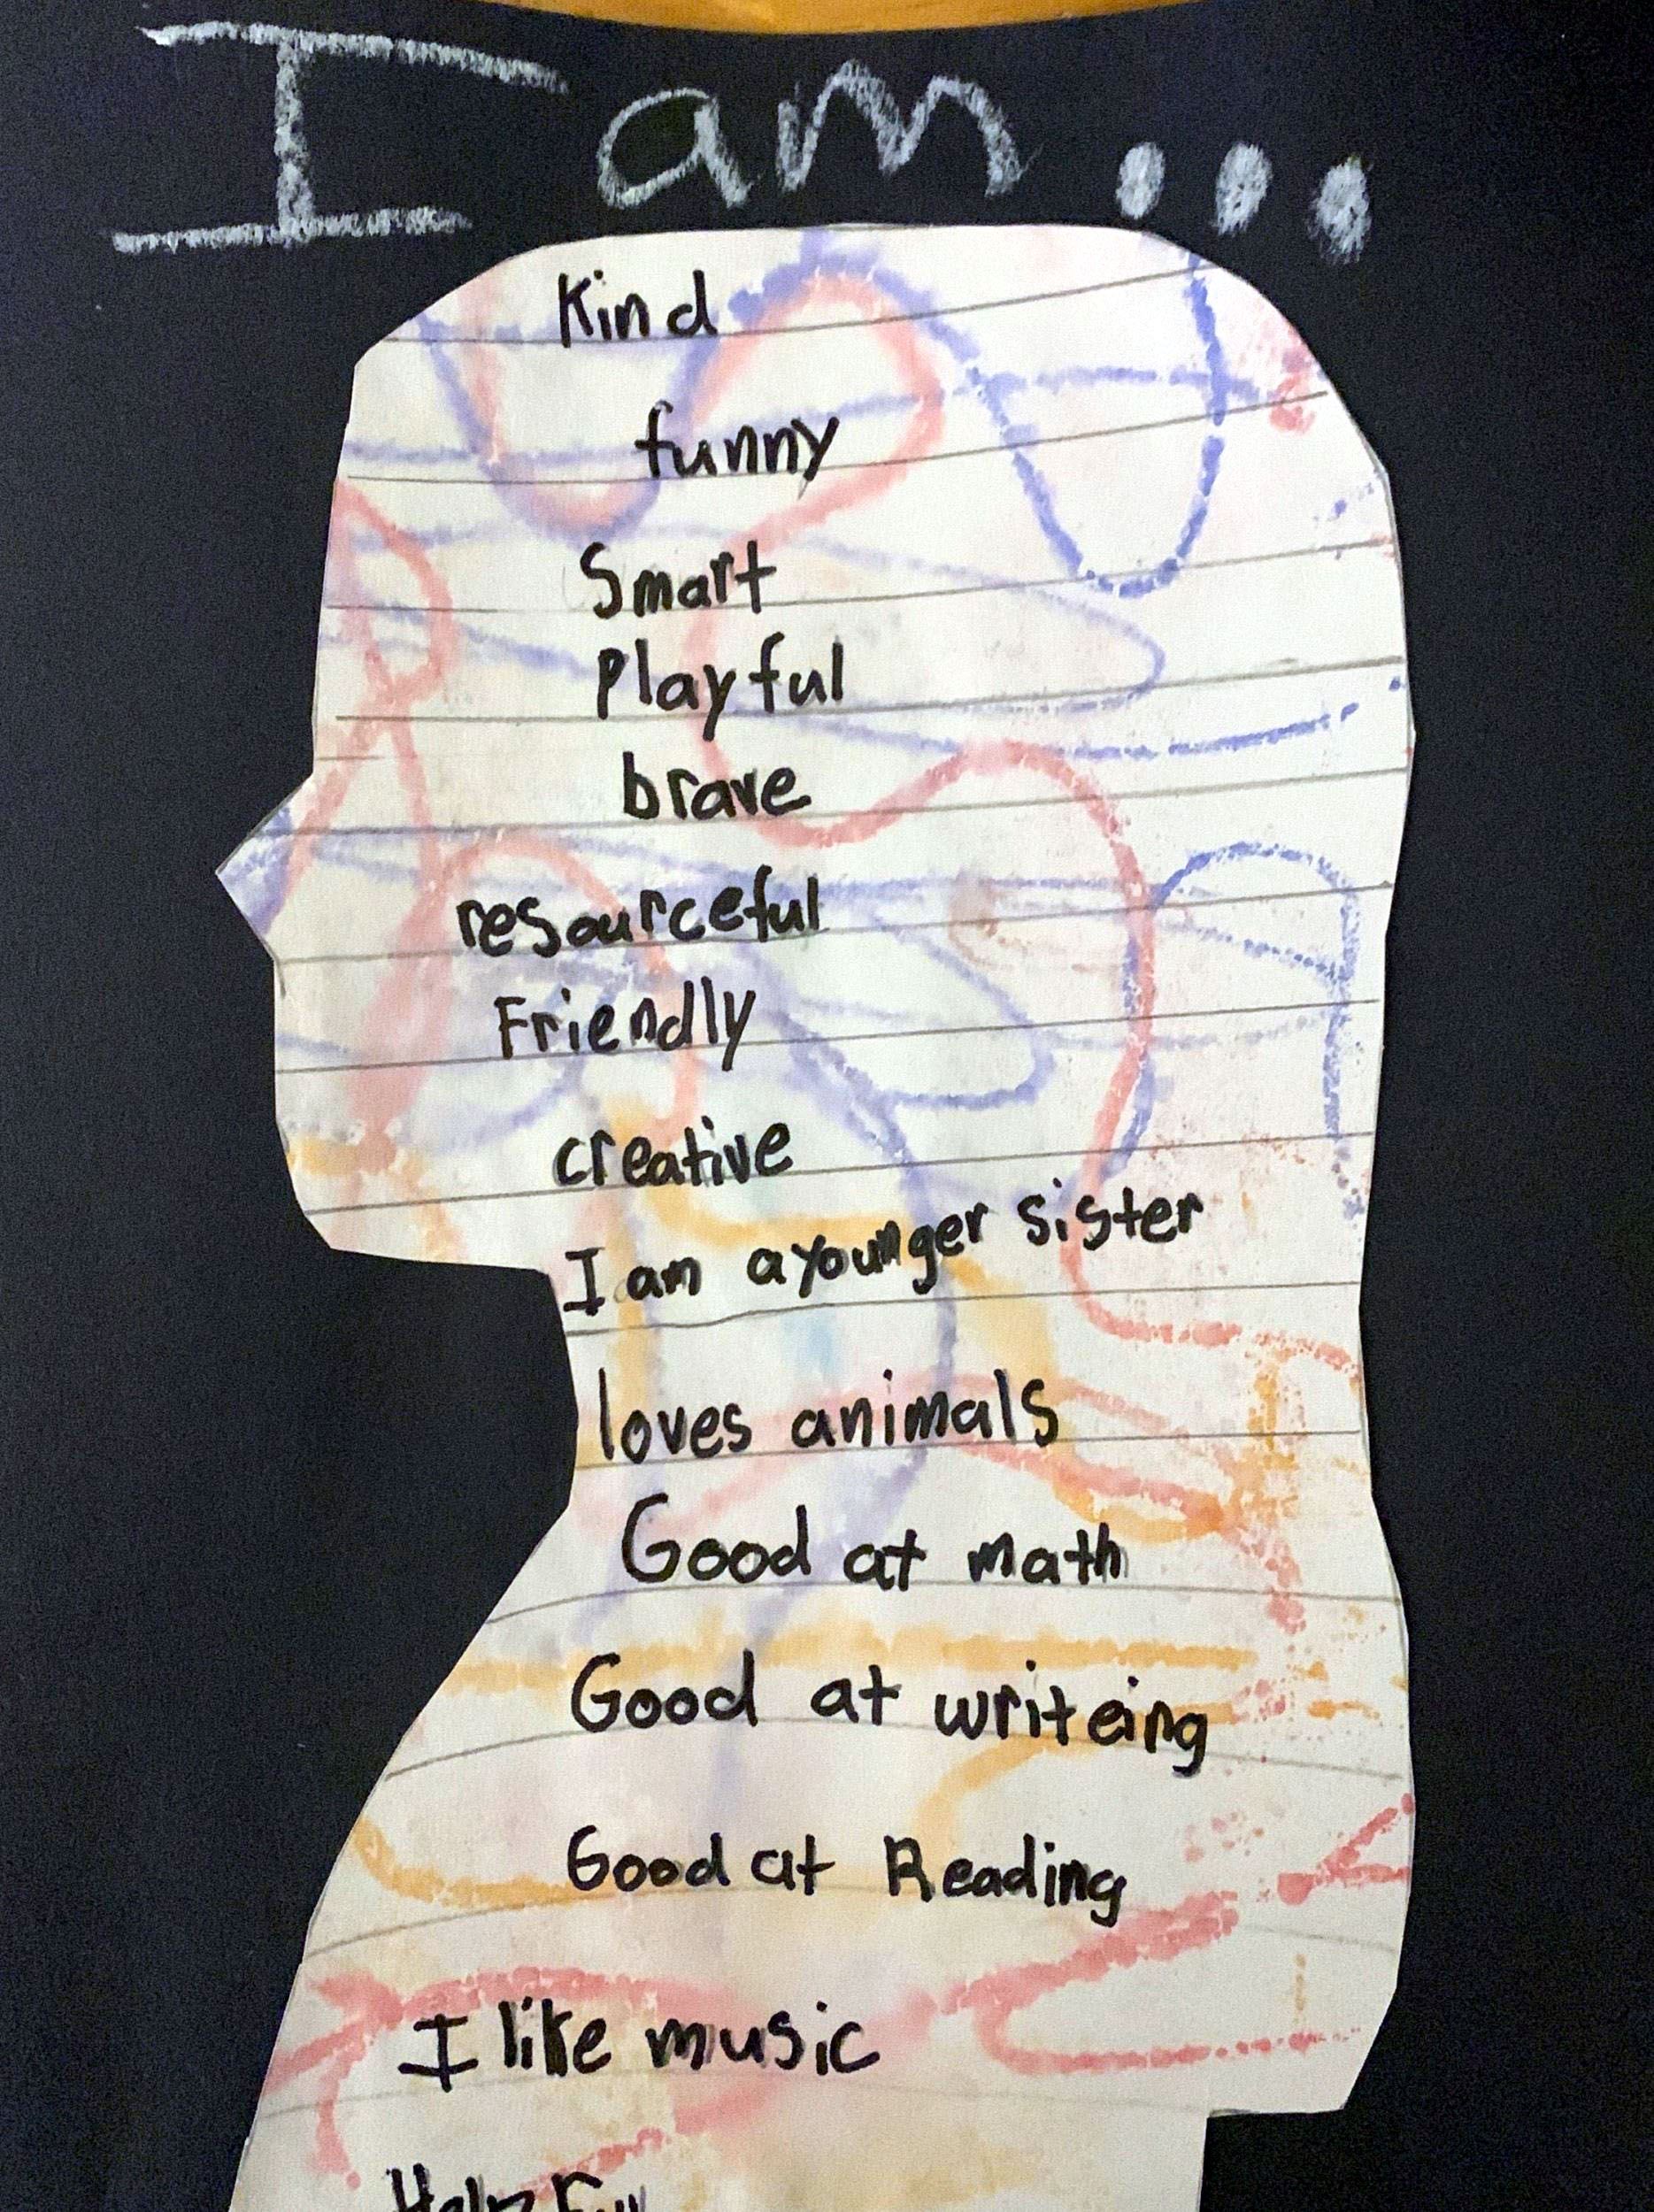 I am...
Kind
funny
Smart
Playful
brave
resourceful
Friendly
creative
I am a younger sister
loves animals
Good at math
Good at writeing
Good at Reading
I like music
HelpFull